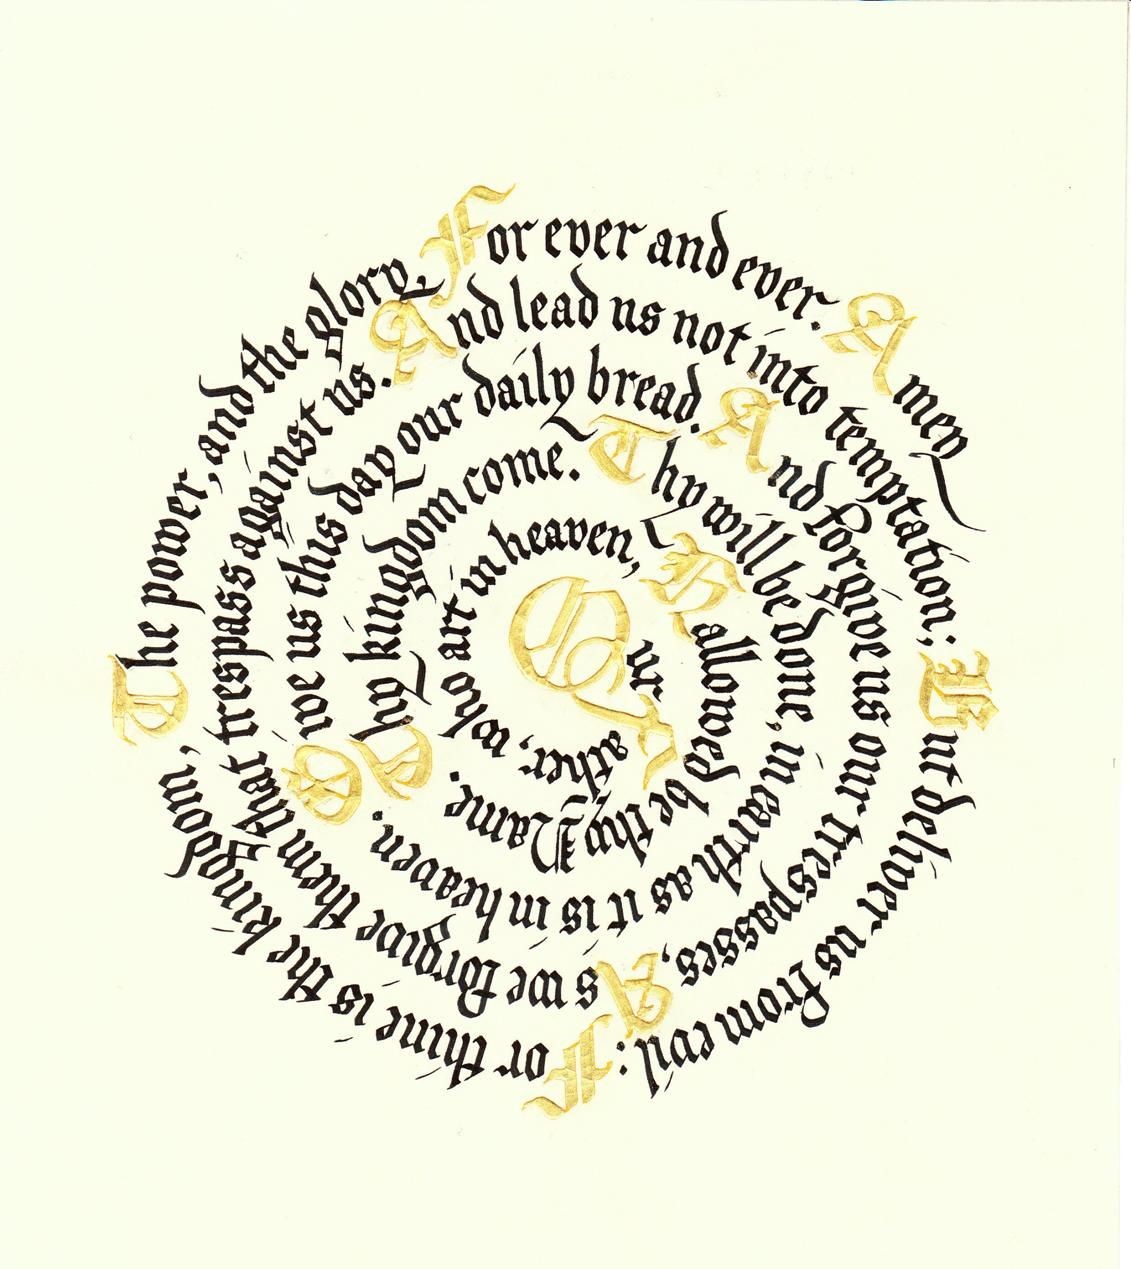 Our Father, who art in heaven, Hallowed be thy Name. Thy kingdom come. Thy will be done, in earth as it is in heaven. Give us this day our daily bread. And forgive us our trespasses, As we forgive them that trespass against us. And lead us not into temptation; But deliver us from evil: For thine is the kingdom, The power, and the glory, For ever and ever. Amen